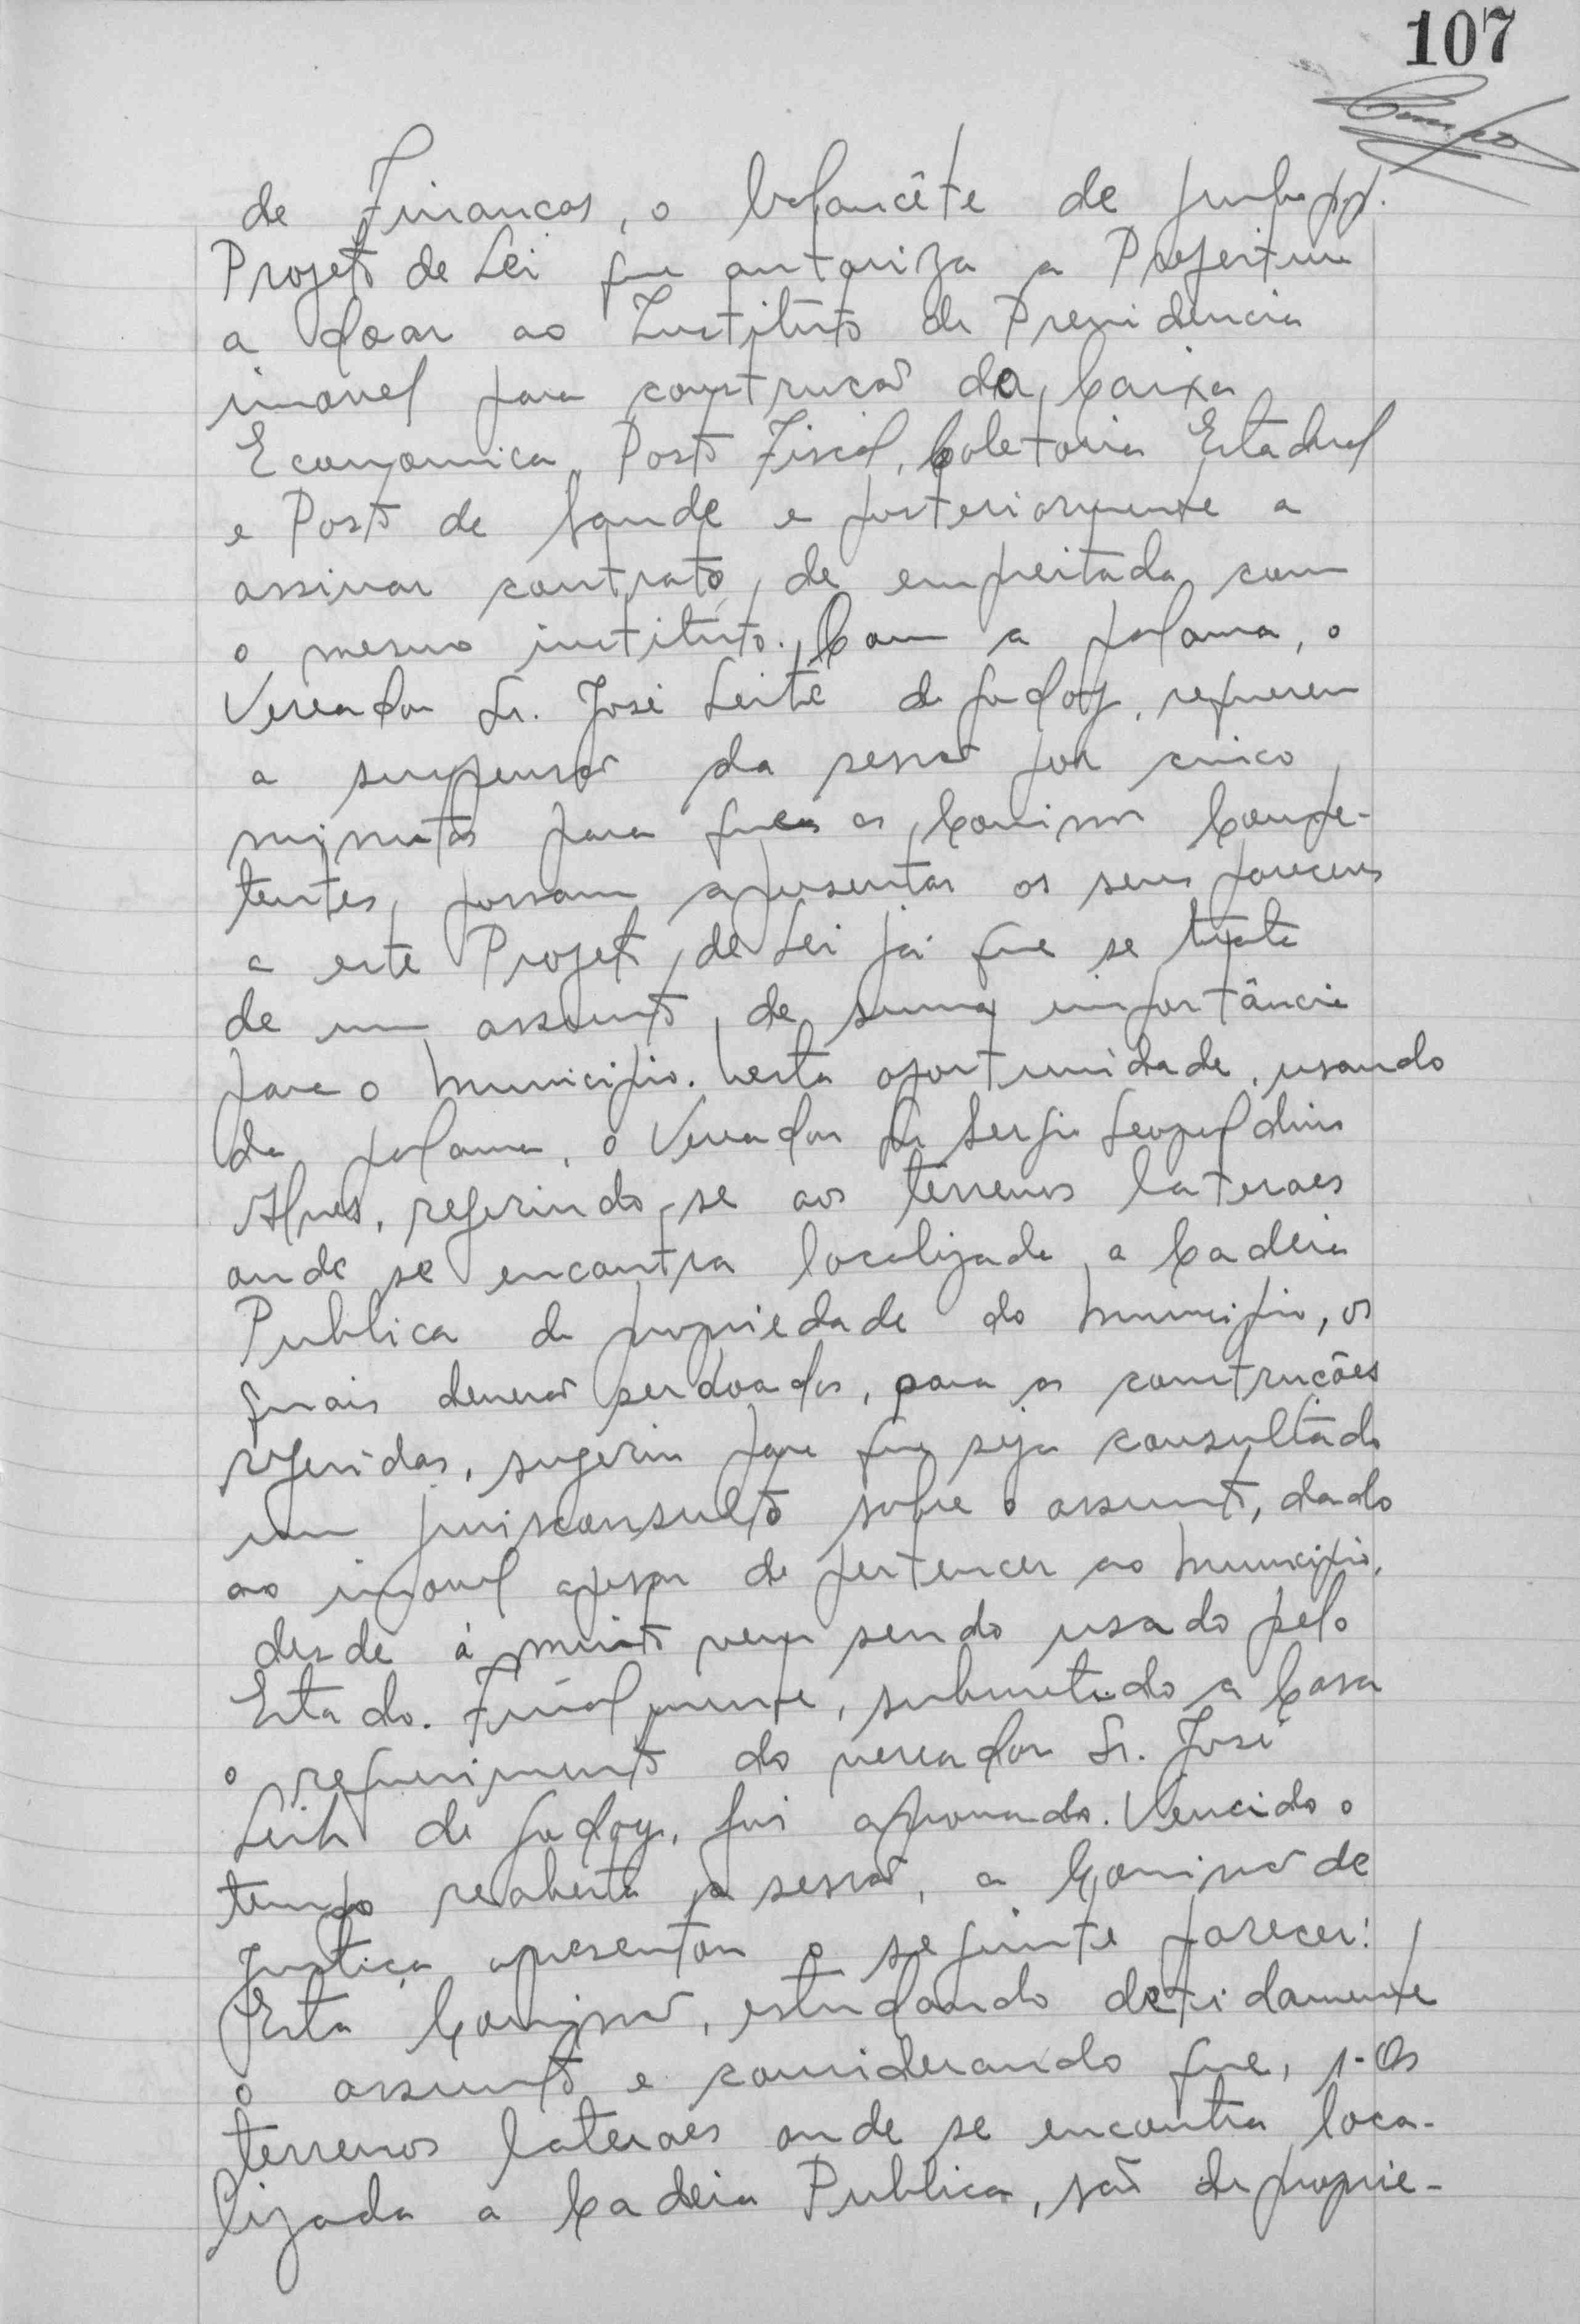 107
de Financas, o balancête de junho pp.
Projeto de Lei que autoriza a Prefeitura
a doar ao Instituto de Previdencia
imovel para construcão da Caixa
Economica, Posto Fiscal, Coletoria Estadual
e Posto de Saude e posteriormente a
assinar contrato de empreitada com
o mesmo instituto. Com a palavra, o
Vereador Sr. José Leite de Godoy, requereu
a suspensão da sessão por cinco
minutos para que as Comissões Compe-
tentes, possam apresentar os seus pareceres
a este Projeto de Lei já que se trata
de um assunto de suma importância
para o Municipio. Nesta oportunidade, usando
da palavra, o Vereador Sr Sergio Leopoldino
Alves, referindo-se aos terrenos lateraes
onde se encontra localizada a Cadeia
Publica de propriedade do Municipio, os
quais deverão ser doados, para as construcões
referidas, sugeriu para que seja consultado
um jurisconsulto sobre o assunto, dado
ao imovel apesar de pertencer ao Municipio,
desde á muito vem sendo usado pelo
Estado. Finalmente, submetido a Casa
o requerimento do vereador Sr. José
Leite de Godoy, foi aprovado. Vencido o
tempo reaberta a sessão, a Comissão de
Justiça apresentou o seguinte parecer:
Esta Comissão, estudando detidamente
o assunto e considerando que, 1-Os
terrenos lateraes onde se encontra loca-
lizada a Cadeia Publica, são de proprie-